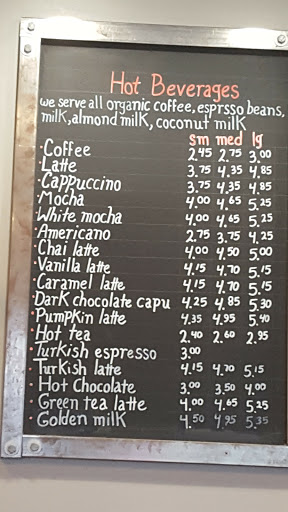 Hot Beverages
we serve all organic coffee, esprsso beans,
milk, almond milk, coconut milk
sm med lg
·Coffee 2.45 2.75 3.00
·Latte 3.75 4.35 4.85
·Cappuccino 3.75 4.35 4.85
·Mocha 4.00 4.65 5.25
·White mocha 4.00 4.65 5.25
·Americano 2.75 3.75 4.25
·Chai latte 4.00 4.50 5.00
·Vanilla latte 4.15 4.70 5.15
·Caramel latte 4.15 4.70 5.15
·Dark chocolate capu 4.25 4.85 5.30
·Pumpkin latte 4.35 4.95 5.40
·Hot tea 2.40 2.60 2.95
·Turkish espresso 3.00
·Turkish latte 4.15 4.70 5.15
·Hot Chocolate 3.00 3.50 4.00
·Green tea latte 4.00 4.65 5.25
·Golden milk 4.50 4.95 5.35